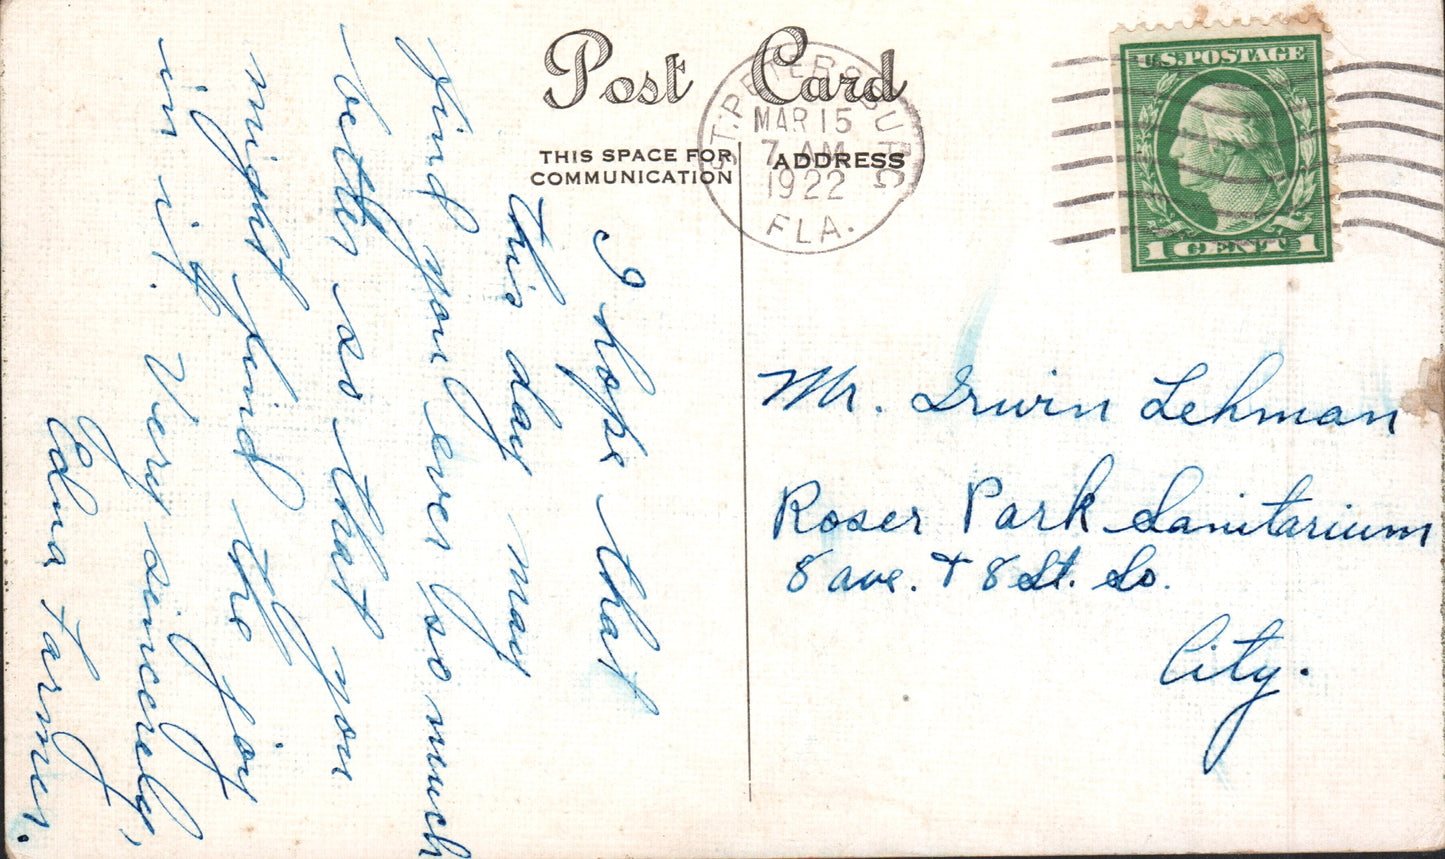 Post Card
THIS SPACE FOR
COMMUNICATION
ADDRESS
ST. PETERSBURG
MAR 15
7 AM
1922
FLA.
U.S. POSTAGE
1 CENT 1
I hope that
this day may
find you ever so much
better so that you
might find the joy
in it. Very sincerely,
Edna Farmer.
Mr. Irwin Lehman
Roser Park Sanitarium
8 ave. + 8 St. So.
City.